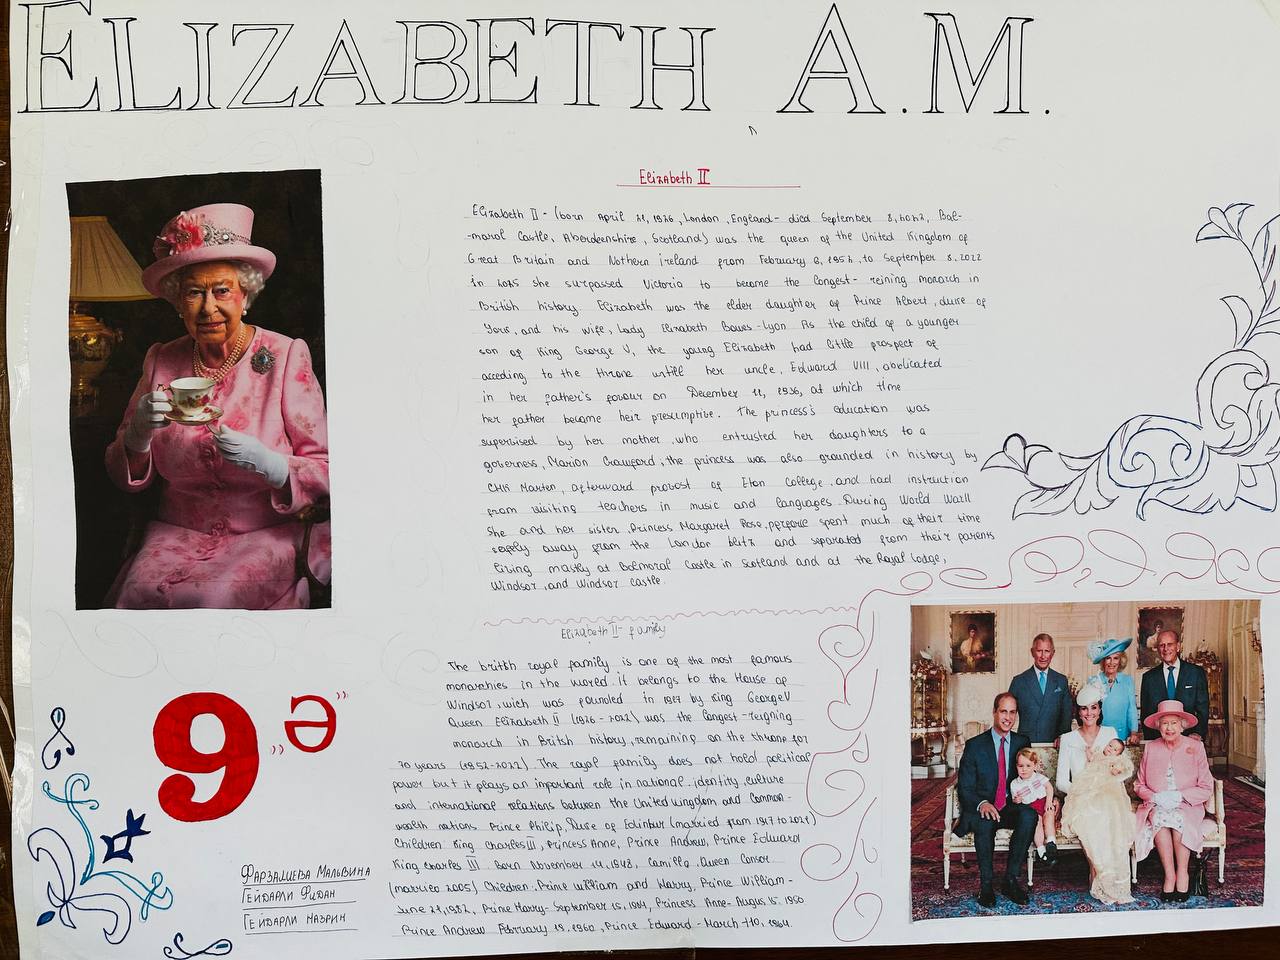 ELIZABETH A.M.
Elizabeth II
Elizabeth II - (born April 21, 1926, London, England- died September 8, 2022, Bal-
-moral Castle, Aberdeenshire, Scotland) was the queen of the United Kingdom of
Great Britain and Nothern ireland from February 6, 1952, to September 8. 2022
in 2015 she surpassed Victoria to become the longest- reining monarch in
British history Elizabeth was the elder daughter of Prince Albert, duke of
York, and his wife, Lady Elizabeth Bowes-Lyon As the child of a younger
son of King George V, the young Elizabeth had little prospect of
acceding to the throne untill her uncle, Edward VIII, abdicated
in her father's favour on December 11, 1936, at which time
her father became heir presumptive. The princess's education was
supervised by her mother, who entrusted her daughters to a
governess, Marion Crawford; the princess was also grounded in history by
CHK Marten, afterward provost of Eton College, and had instruction
from visiting teachers in music and languages. During World War II
She and her sister, Princess Margaret Rose, spent much of their time
safely away from the London blitz and separated from their parents
living mostly at Balmoral Castle in scotland and at the Royal Lodge,
Windsor, and Windsor castle.
Elizabeth II - family
The british royal family is one of the most famous
monarchies in the world. it belongs to the House of
Windsor, wich was founded in 1917 by king George V
Queen Elizabeth II (1926 - 2022) was the longest-reigning
monarch in British history, remaining on the throne for
70 years (1952-2022). The royal family does not hold political
power but it plays an important role in national identity, culture
and international relations between the United kingdom and Common-
wealth nations Prince Philip, Duke of Edinbur (married from 1947 to 2021)
Children King Charles III, Princess Anne, Prince Andrew, Prince Edward
King Charles III Born November 14, 1948, Camilla, Queen Consor
(married 2005) Children: Prince William and Harry, Prince William-
June 21, 1982, Prince Harry- September 15, 1984, Princess Anne- Augus 15. 1950
Prince Andrew February 19. 1960, Prince Edward - March 10, 1964.
9 „ə”
Фарзалиева Мальвина
Гейдарли Фидан
ГейдарлиНазрин